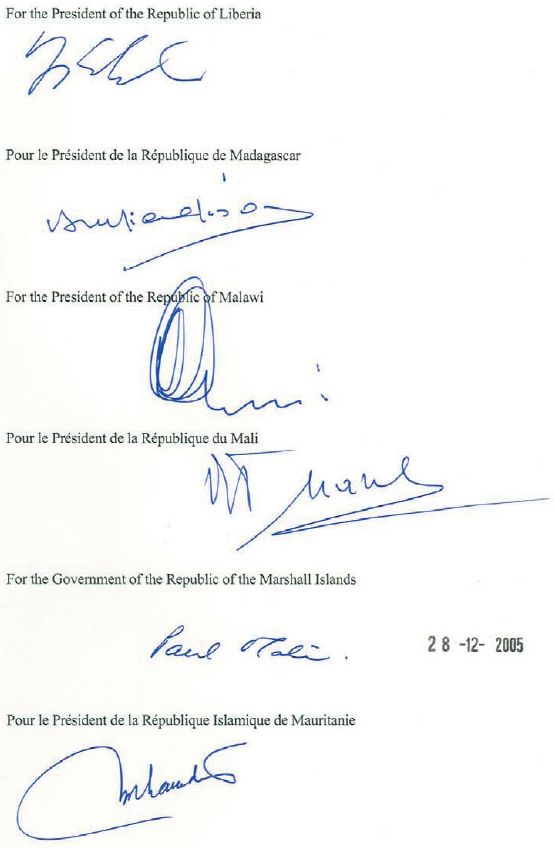 For the President of the Republic of Liberia
Pour le Président de la République de Madagascar
For the President of the Republic of Malawi
Pour le Président de la République du Mali
For the Government of the Republic of the Marshall Islands
Paul
28 -12- 2005
Pour le Président de la République Islamique de Mauritanie